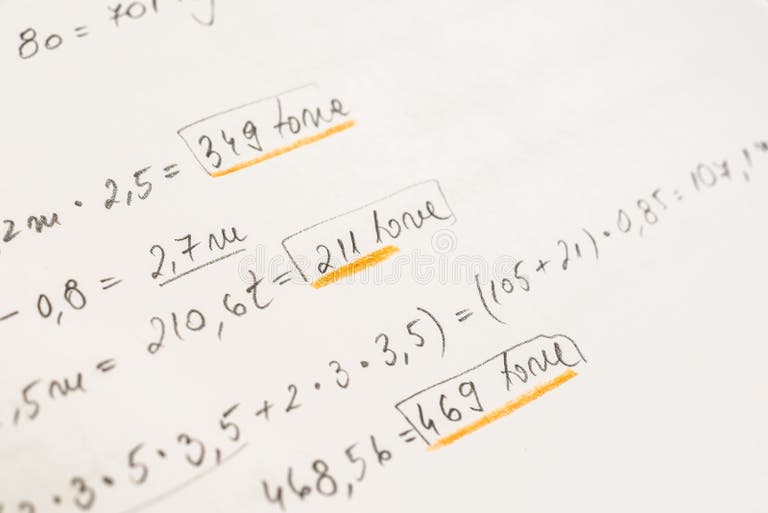 80 = 701
2 m · 2,5 = 349 tone
- 0,8 = 2,7 m
,5 m = 210,6 t = 211 tone
· 3 · 5 · 3,5 + 2 · 3 · 3,5) = (105 + 21) · 0,85 = 107,1
468,56 = 469 tone
dreamstime